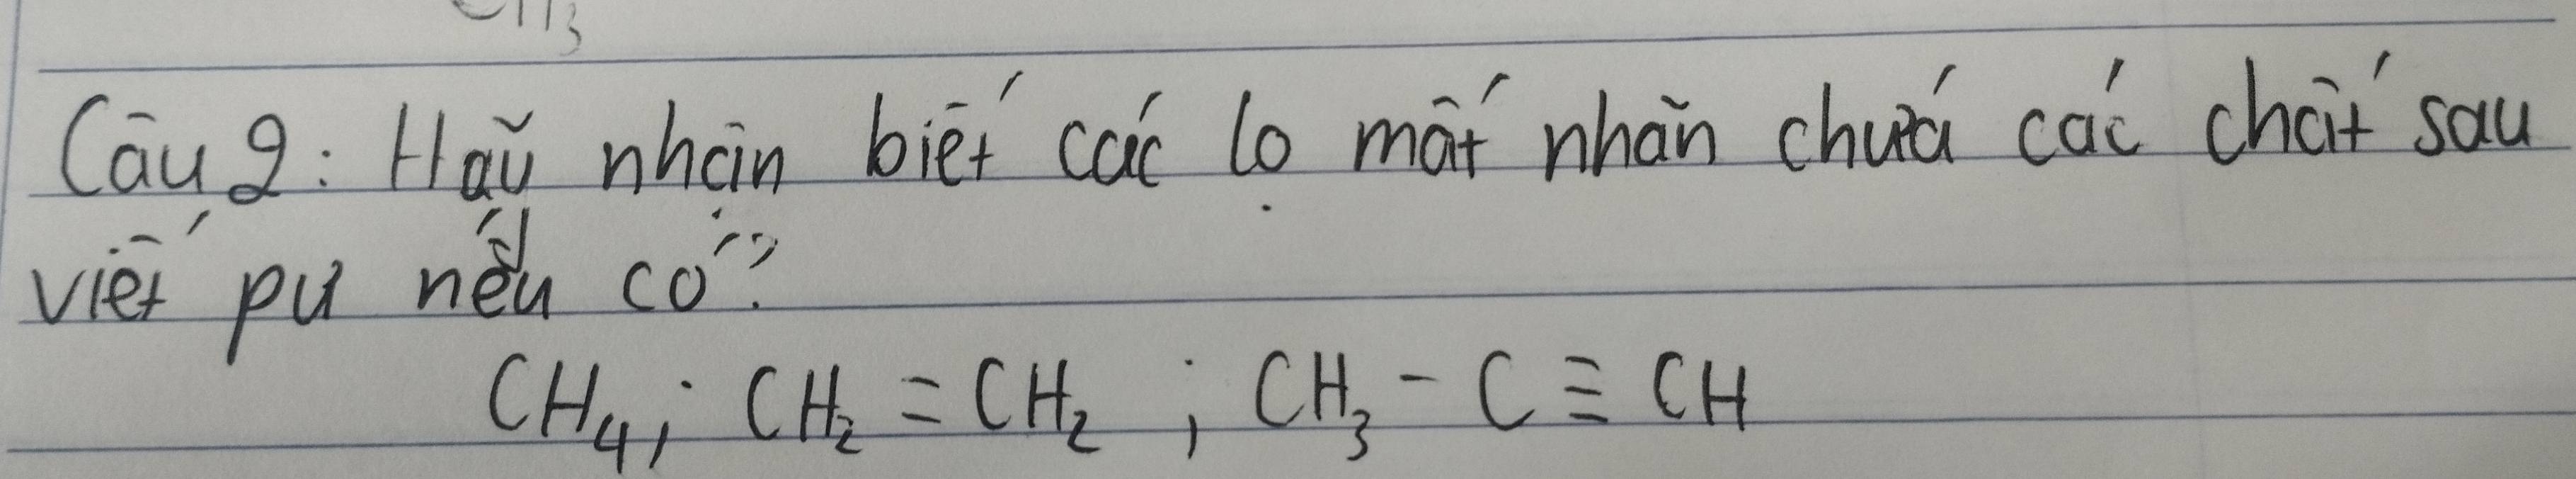 CH3
Câu 2: Hãy nhận biết các lọ mất nhãn chứa các chất sau
viết pư nếu có?
CH₄; CH₂ = CH₂ ; CH₃ - C ≡ CH